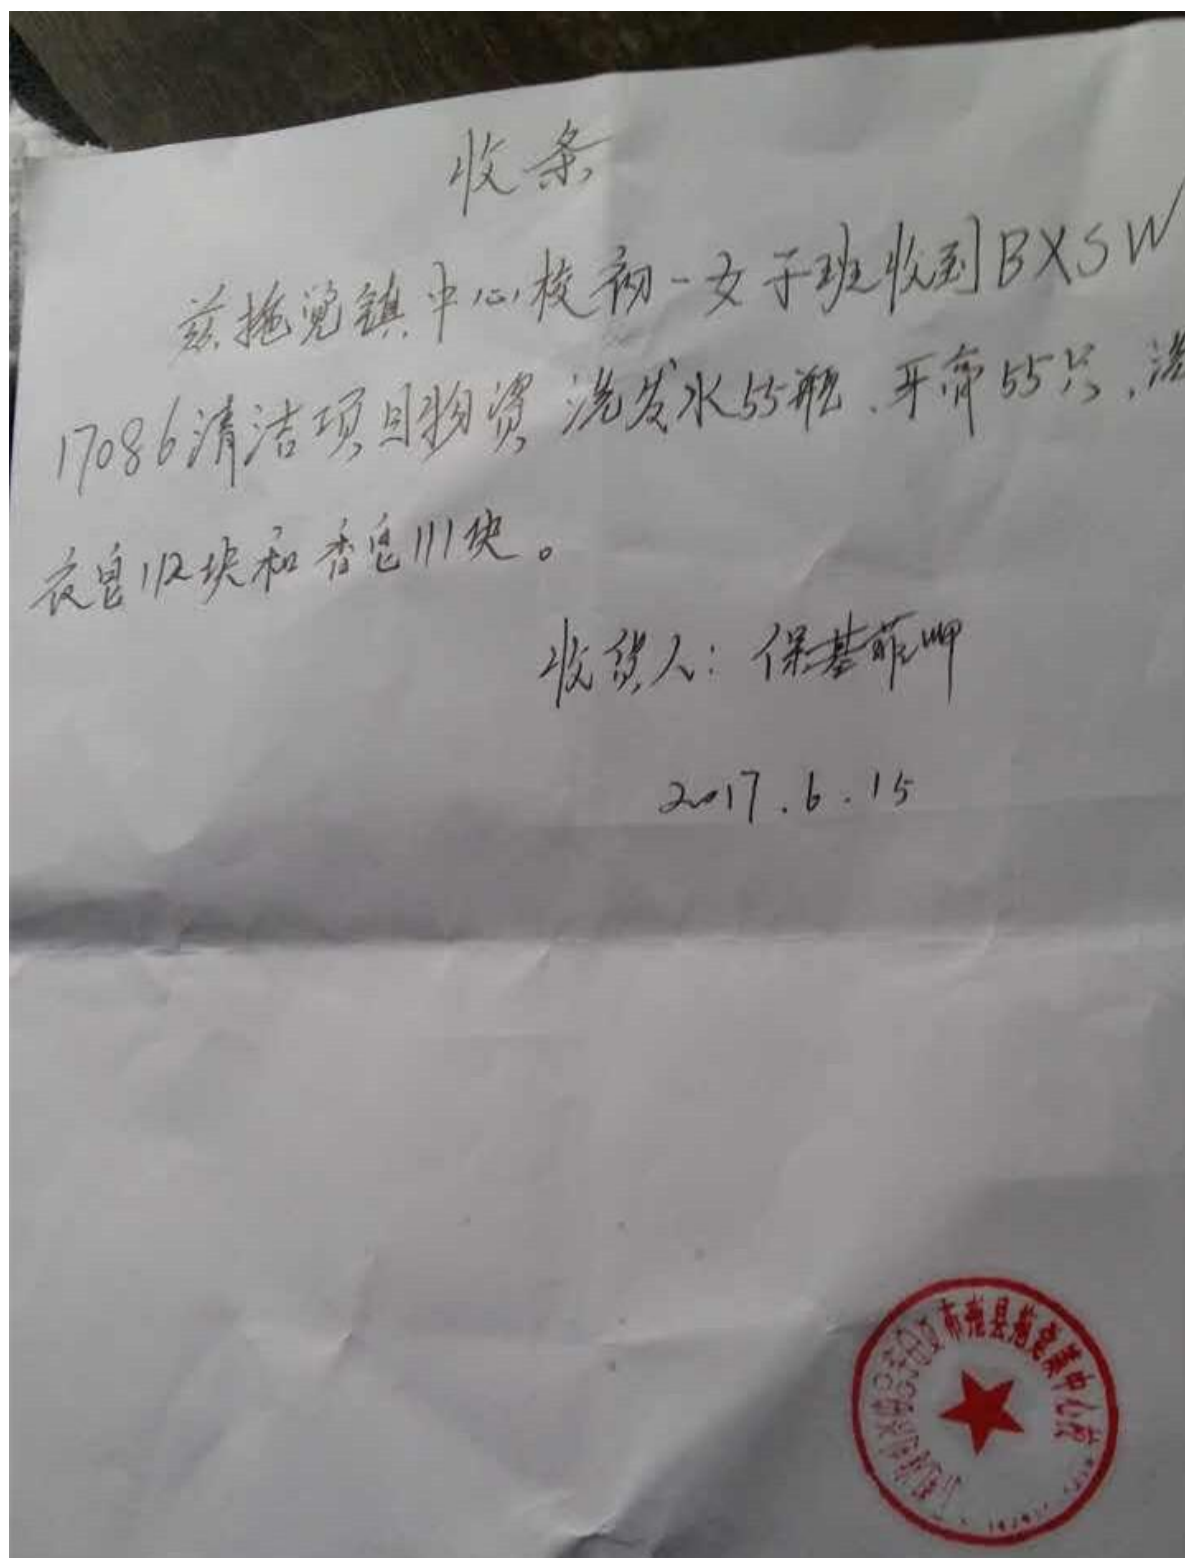 收条
兹拖觉镇中心校初一女子班收到BXSW
17086清洁项目物资 洗发水55瓶、牙膏55只、洗
衣皂112块和香皂111块。
收货人：保基菲呷
2017.6.15
布拖县拖觉镇中心校